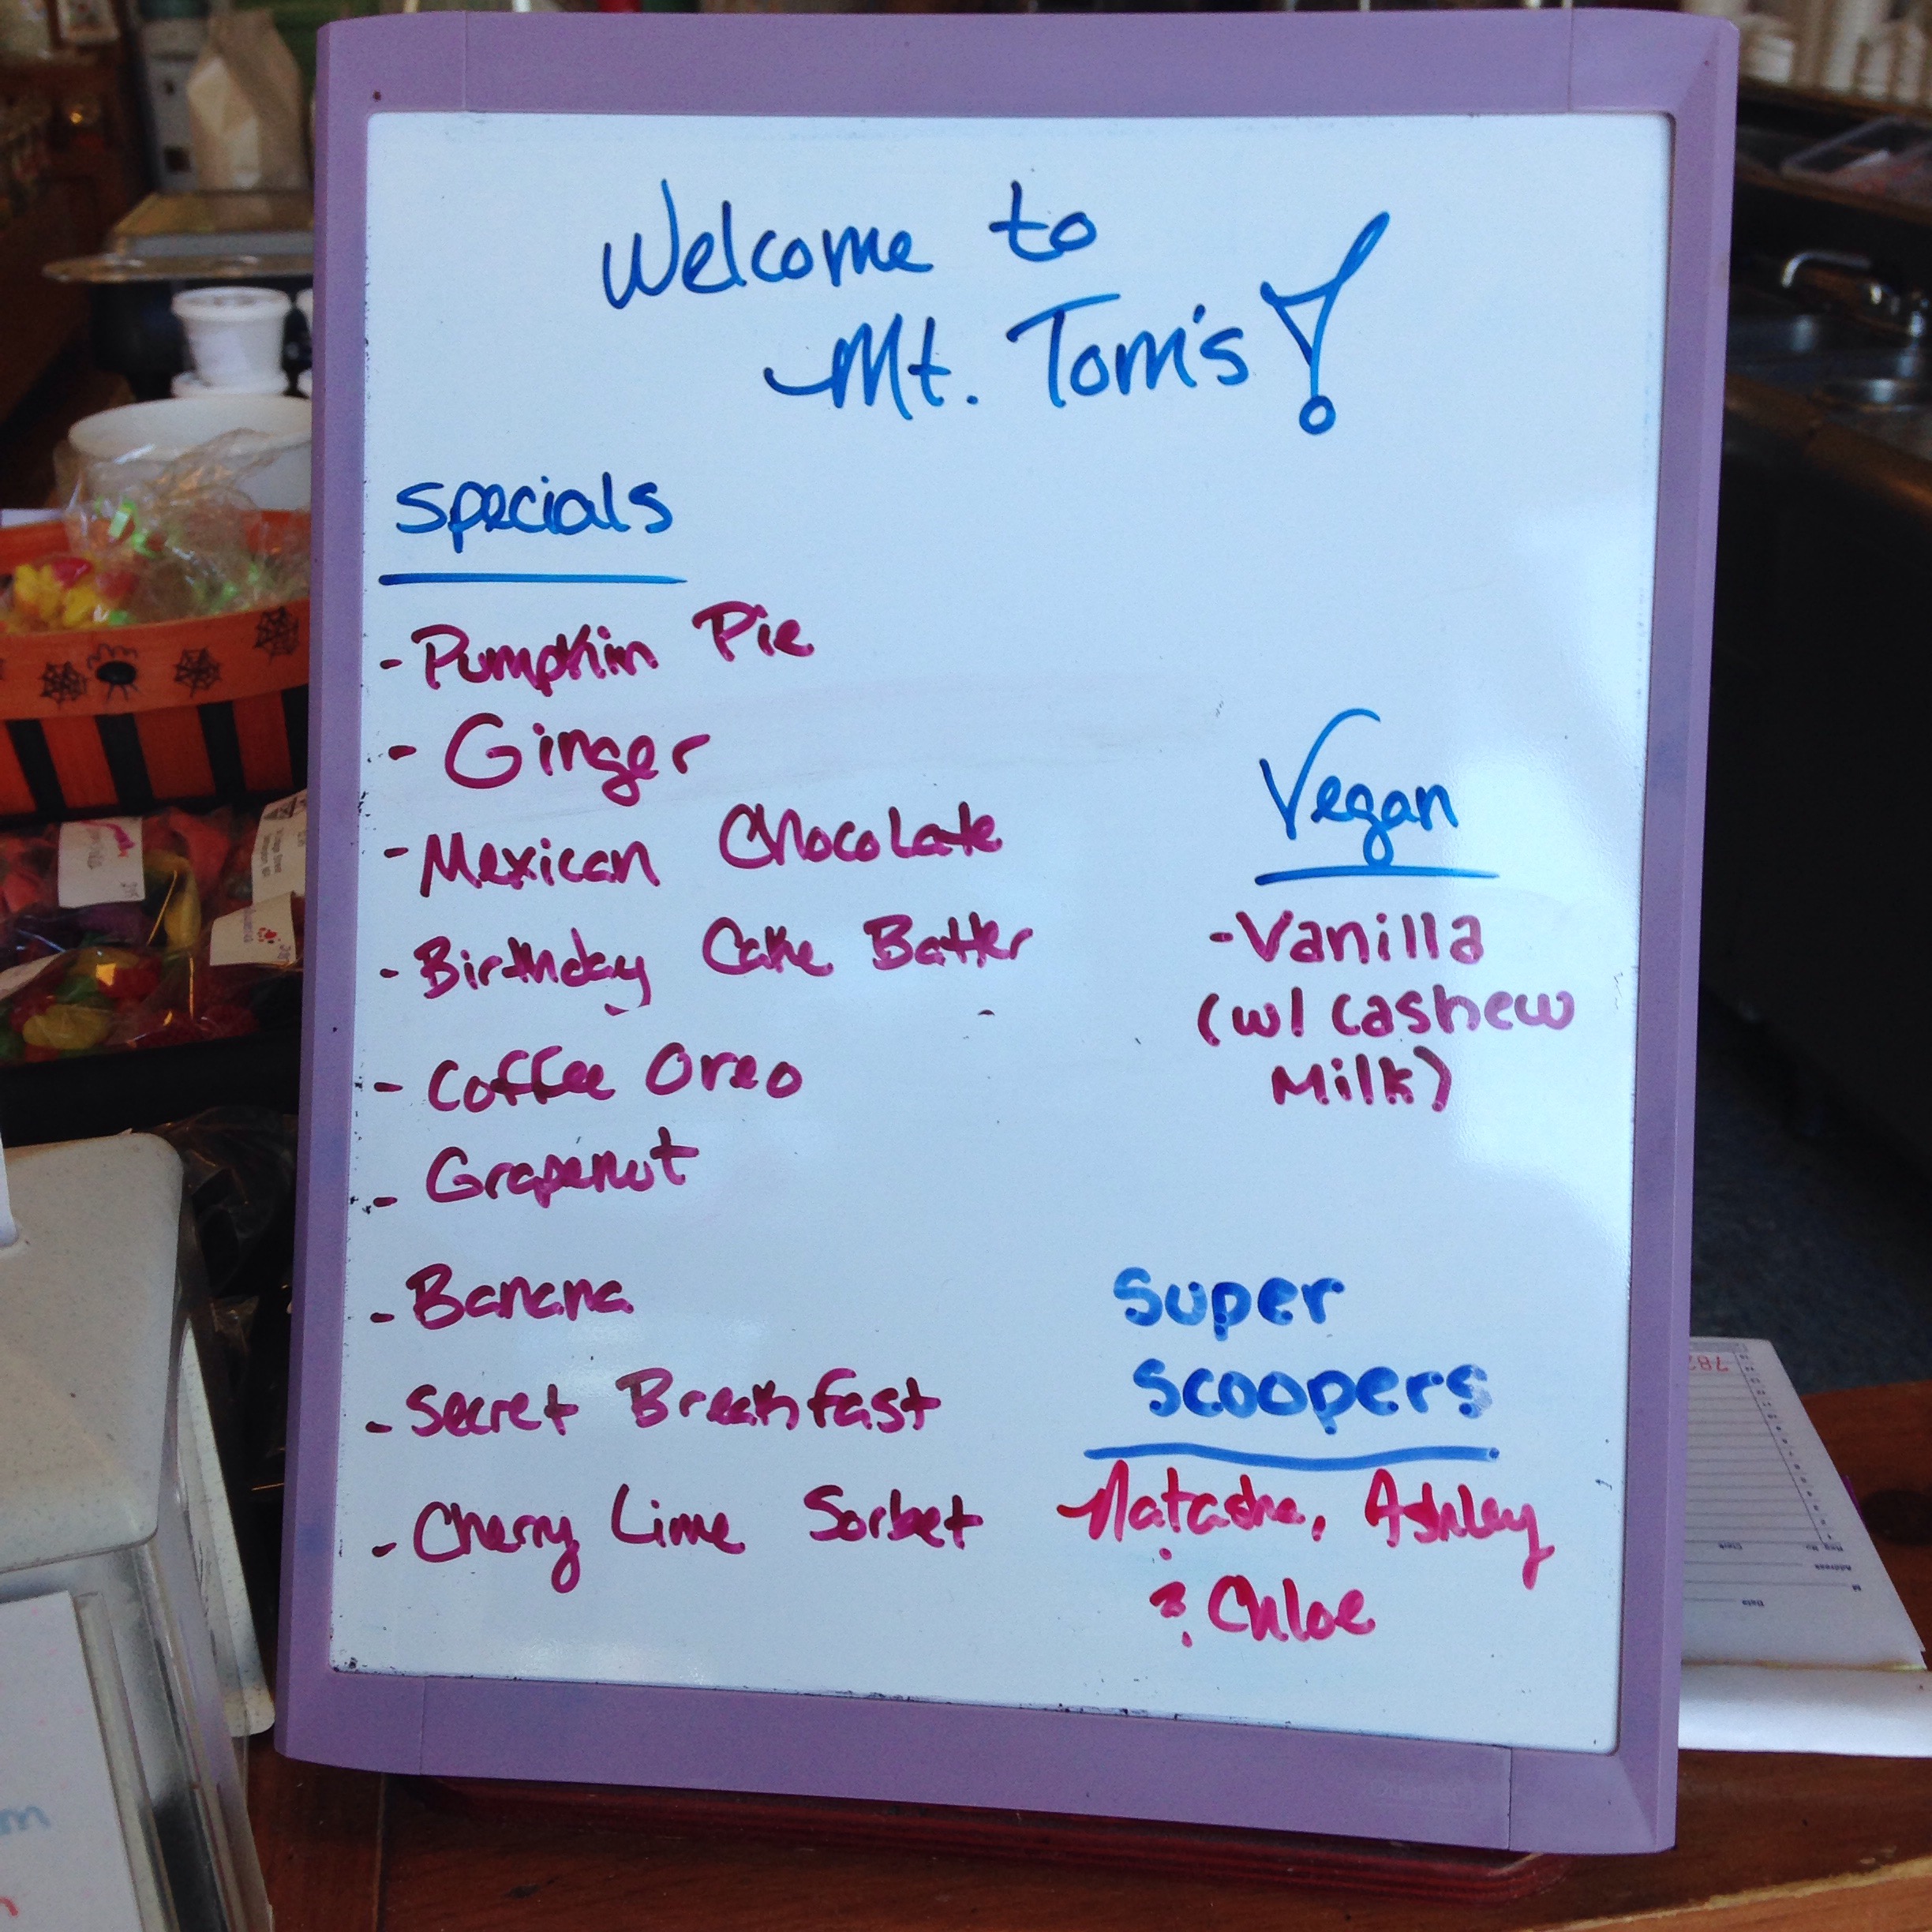 Welcome to
Mt. Tom's!
Specials
- Pumpkin Pie
- Ginger
- Mexican Chocolate
- Birthday Cake Batter
- Coffee Oreo
- Grapenut
- Banana
- Secret Breakfast
- Cherry Lime Sorbet
Vegan
- Vanilla
(w/ cashew
Milk)
Super
Scoopers
Natasha, Ashley
& Chloe